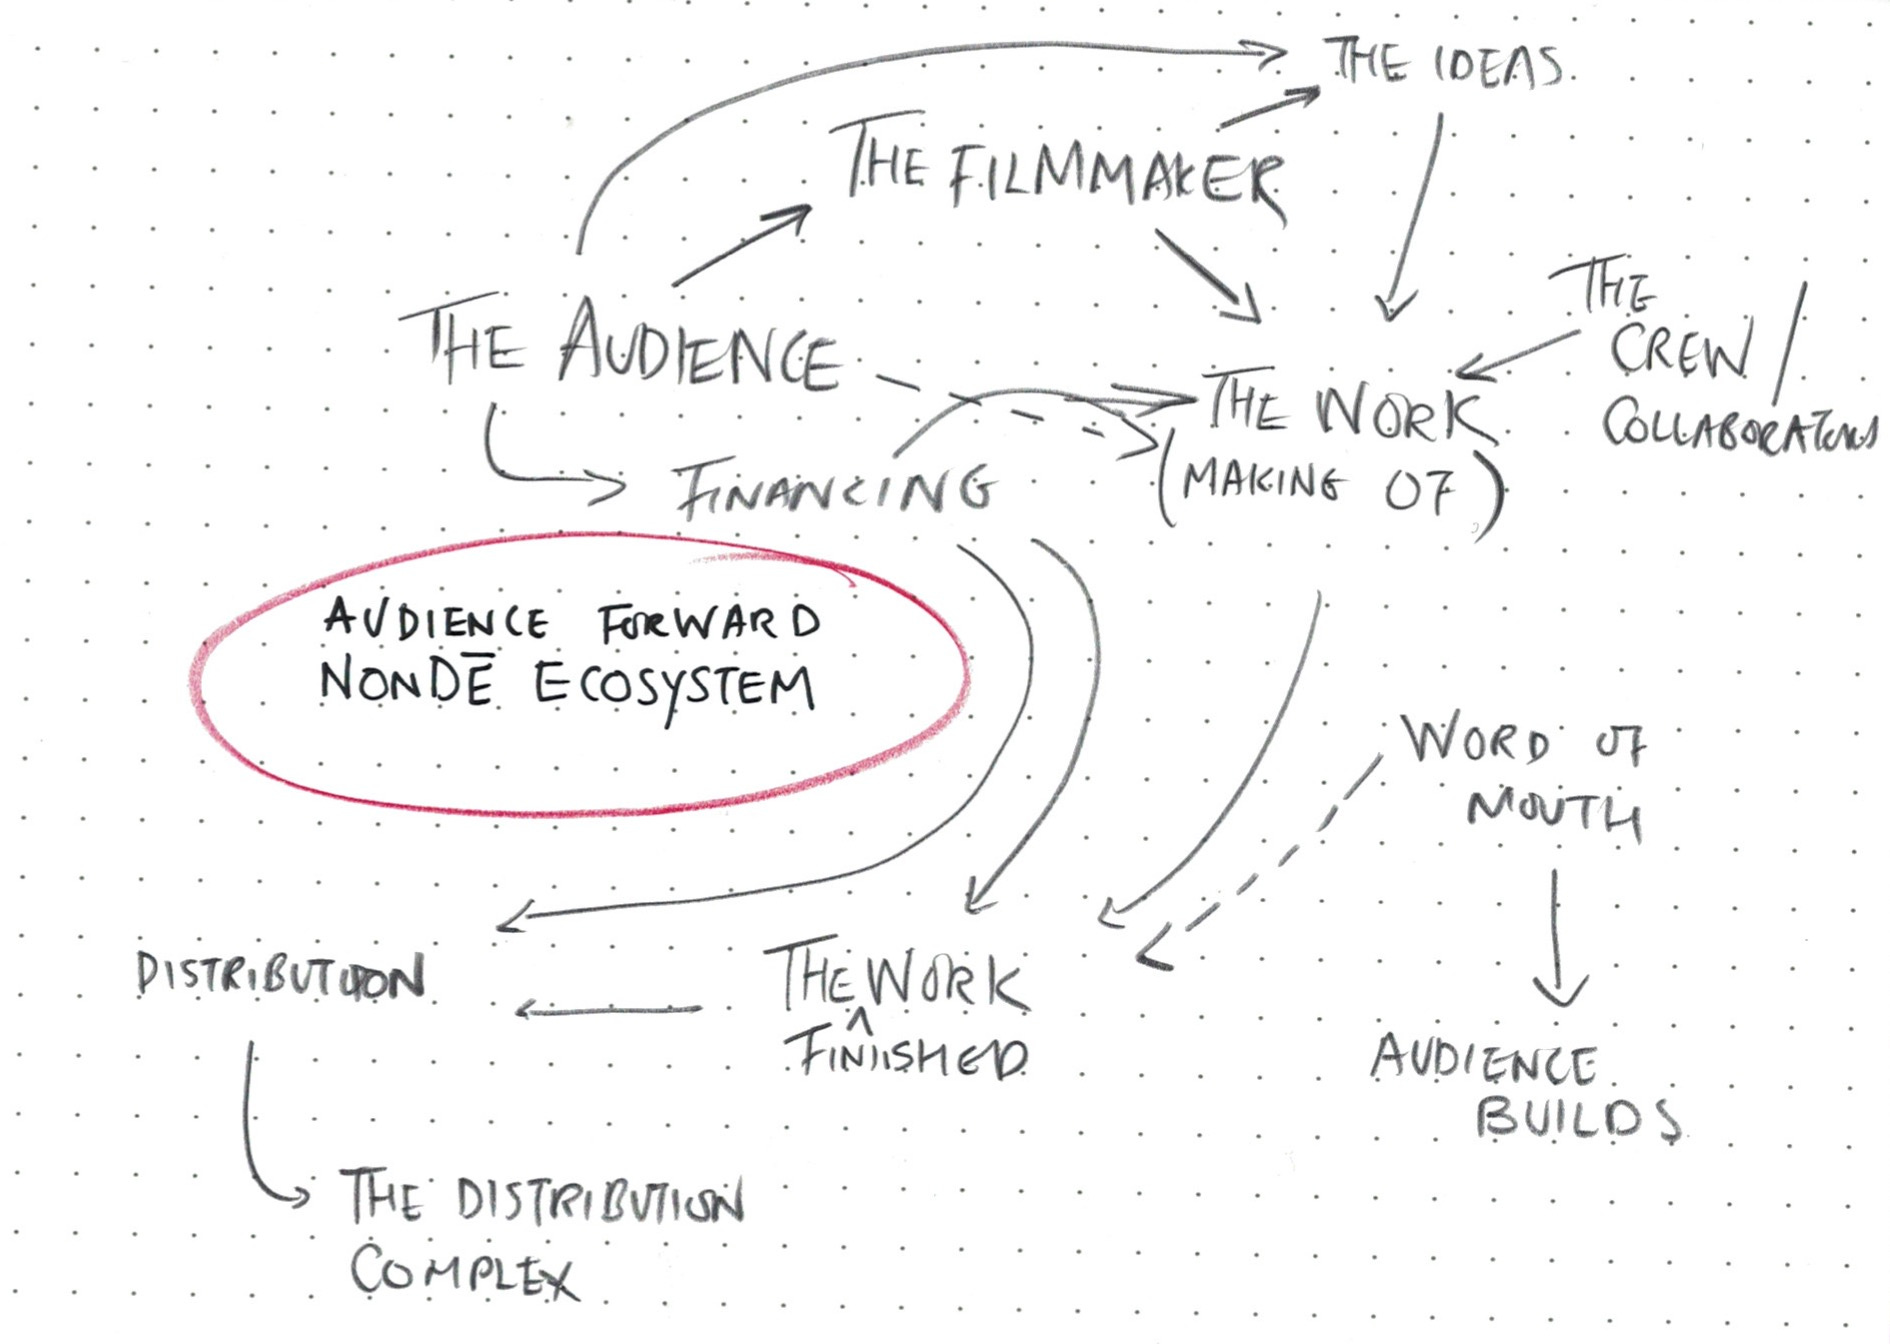 THE IDEAS
THE FILMMAKER
THE AUDIENCE
THE
CREW /
COLLABORATORS
THE WORK
(MAKING OF)
FINANCING
AUDIENCE FORWARD
NONDĒ ECOSYSTEM
WORD OF
MOUTH
DISTRIBUTION
THE WORK
^
FINISHED
AUDIENCE
BUILDS
THE DISTRIBUTION
COMPLEX